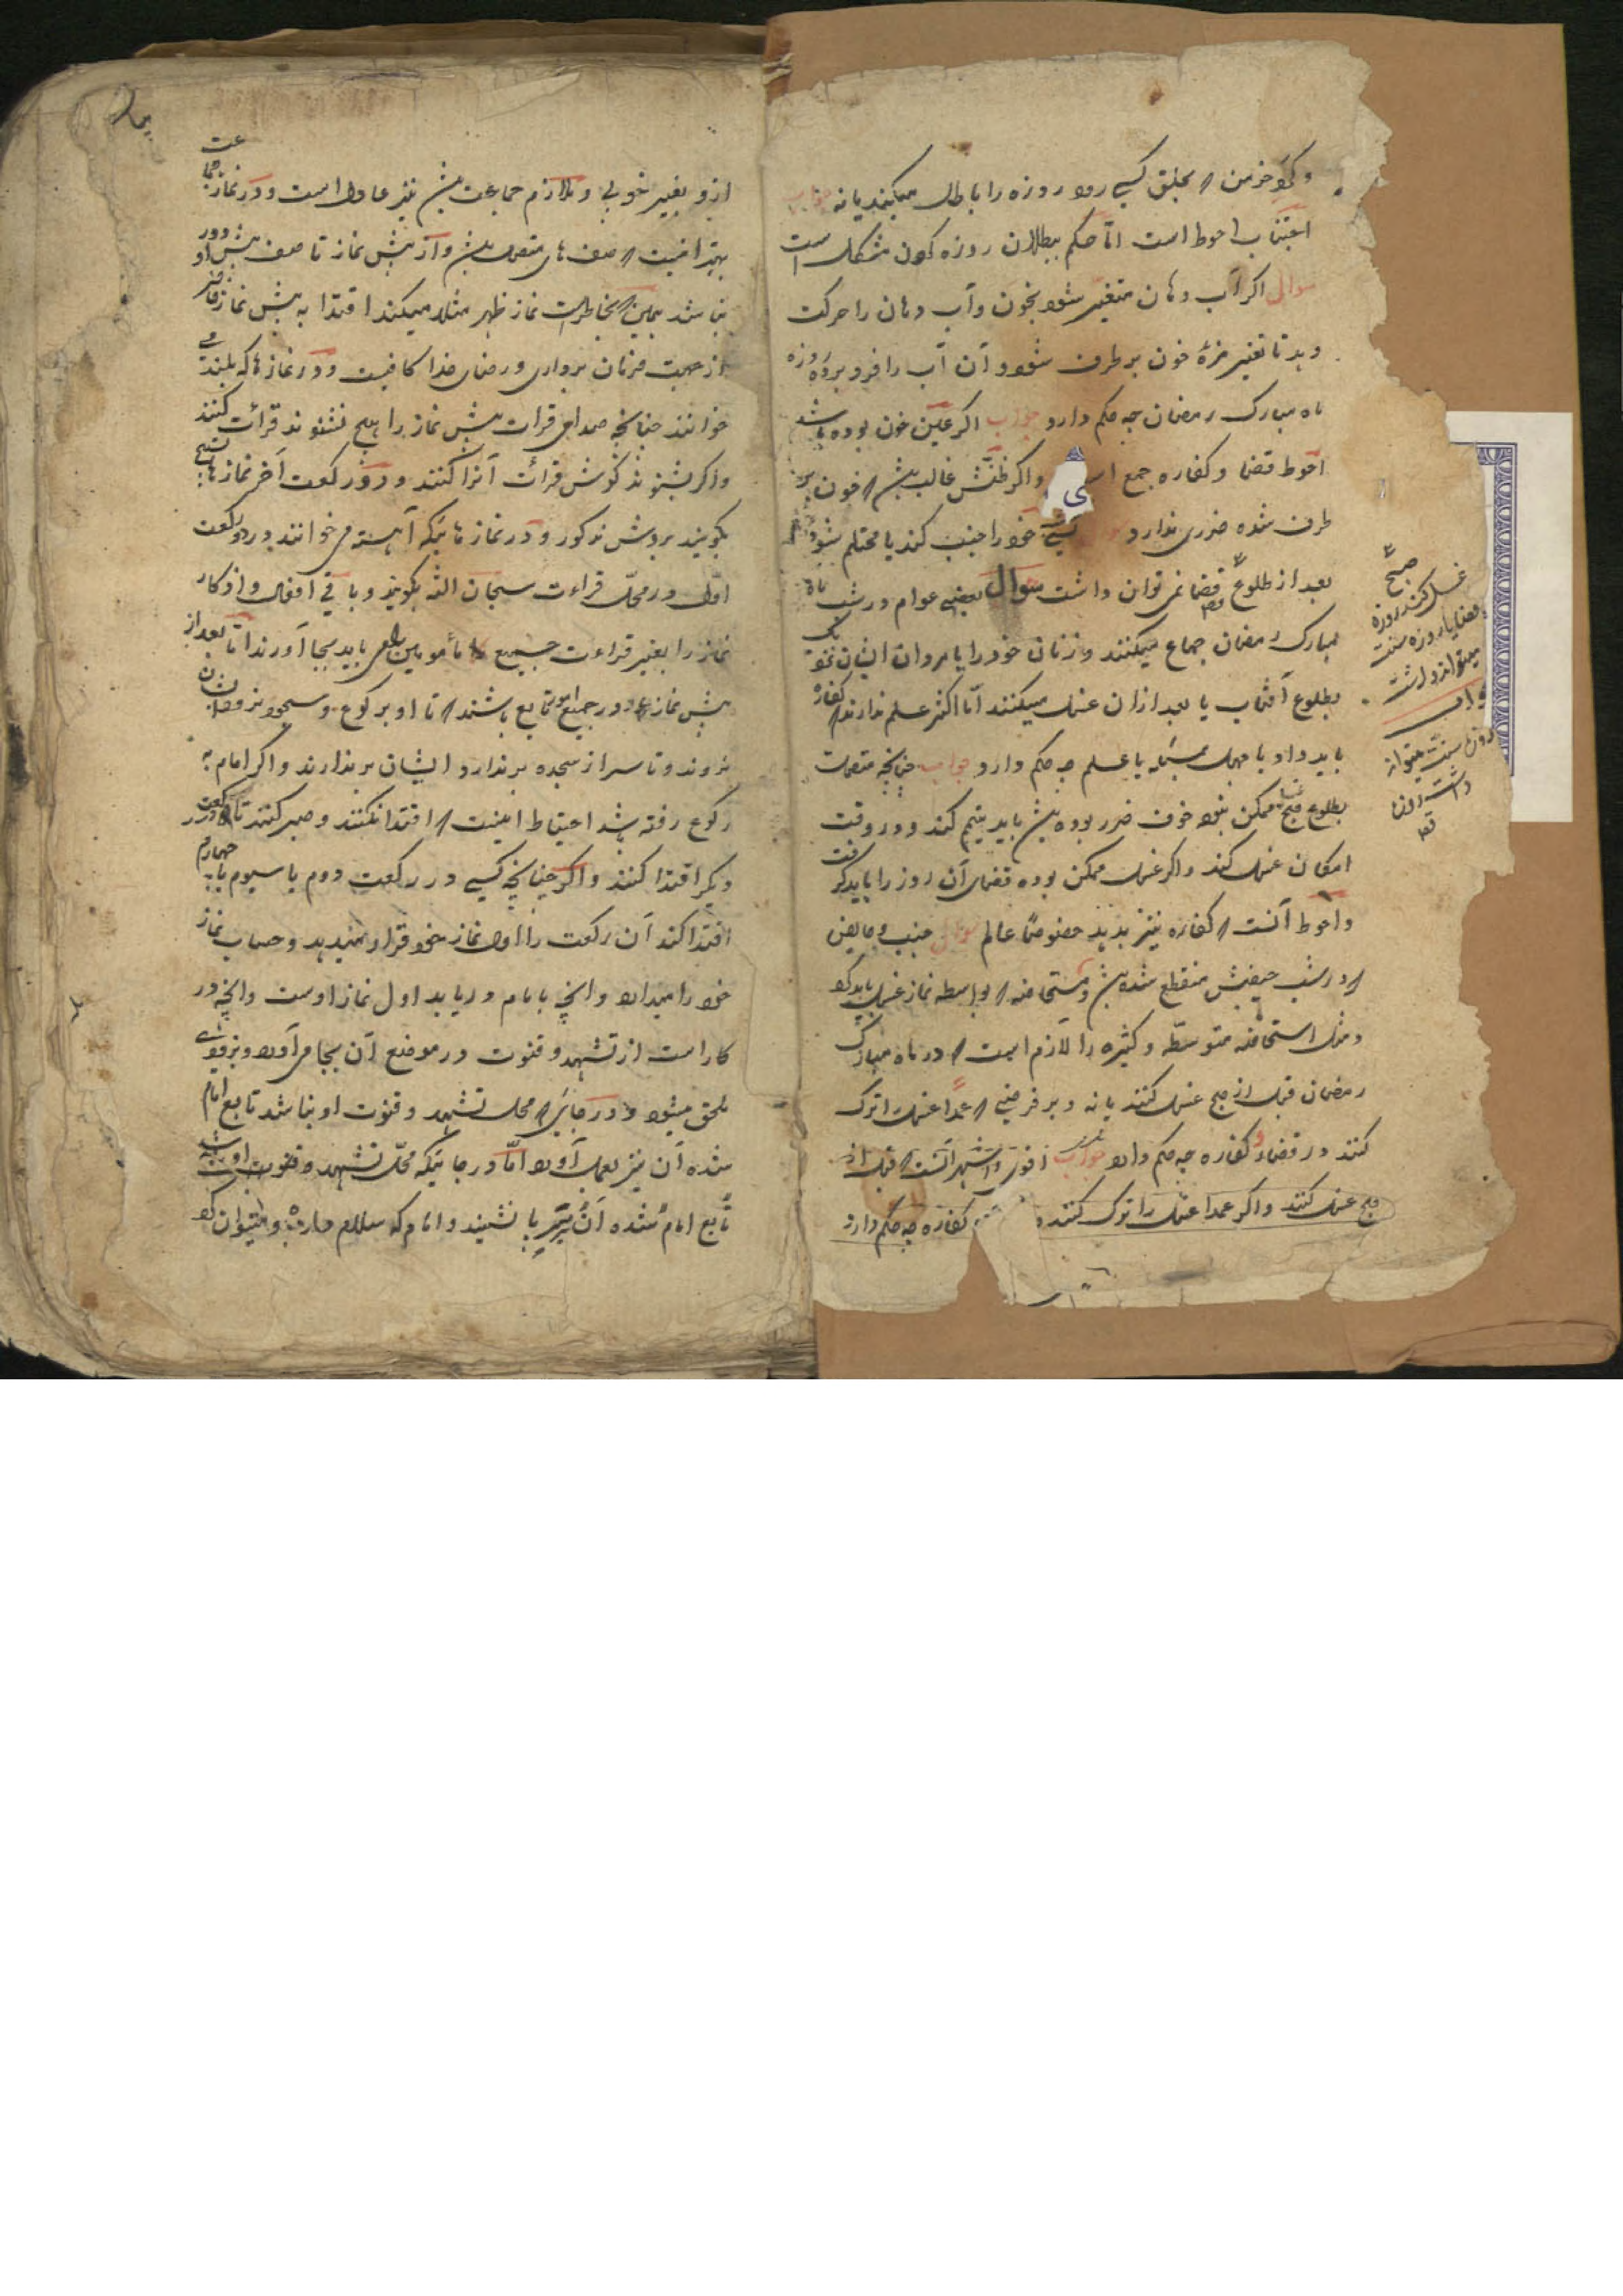 و گرد خرمن که بحلق کسی رود روزه را باطل میکند یا نه جواب
اجتناب احوط است امّا حکم ببطلان روزه کردن مشکل است
سوال اکر آب دهان متغیّر شود بخون و آب دهان را حرکت
دهد تا تغییر مزهٔ خون بر طرف شود و آن آب را فرو برد روزه
ماه مبارک رمضان چه حکم دارد جواب اکر عین خون بوده باشد
احوط قضا و کفاره جمع است و اکر ظنّش غالب باشد که خون بر
طرف شده ضرری ندارد کسی خود را جنب کند یا محتلم شود
بعد از طلوع قضا نمی توان داشت سوال بعضی عوام در شب ماه
مبارک رمضان جماع میکنند و زنان خود را یا مردان ایشان
بطلوع آفتاب یا بعد از ان غسل میکنند امّا اکثر علم ندارند که کفاره
باید داد با جهل بمسئله یا علم چه حکم دارد جواب چنانچه متصل
بطلوع صبح ممکن نبود خوف ضرر بوده باشد باید تیمم کند و در وقت
امکان غسل کند و اکر غسل ممکن بوده قضای آن روز را باید گرفت
و احوط آنست که کفاره نیز بدهد خصوصا عالم سوال جنب و حایض
که در شب حیضش منقطع شده باشد و مستحاضه که بواسطه نماز غسل باید کرد
و مثل استحاضه متوسطّه و کثیره را لازم است که در ماه مبارک
رمضان قبل از صبح غسل کنند یا نه و بر فرضی که عمداً غسل را ترک
کنند در قضا و کفاره چه حکم دارد جواب اقوی و اشهر آنست که قبل از
صبح غسل کنند و اکر عمدا غسل را ترک کنند کفاره چه حکم دارد
صبح
غسل کند روزه
قضا یا روزه سنت
میتواند داشت
جواب
روزه سنت میتواند
داشت
از و بغیر خوبی و ملازم جماعت باشد نیز عادل است و در نماز جماعت
بهتر انست که صف های متصل باشد و از پیش نماز تا صف پیش او دور
نباشد همین که بخاطر است نماز ظهر مثلا میکند اقتدا به پیش نماز حاضر
از جهت فرمان برداری و رضای خدا کافیست و در نماز ها که بلند می
خوانند چنانچه صدای قرات پیش نماز را هیچ نشنوند قرائت کنند
و اکر بشنوند گوش قرائت آنرا کنند و در دو رکعت آخر نماز ها تسبیح
بگویند بروش مذکور و در نماز هائیکه آهسته می خوانند در دو رکعت
اوّل در محلّ قراءت سبحان اللّه بکویند و باقی افعال و اذکار
نماز را بغیر قراءت جمیع مأمومین باید بجا آورند امّا بعد از
پیش نماز و در جمیع امور تابع باشند که تا او برکوع و سجود نرود ایشان
نروند و تا سر از سجده بر ندارد ایشان بر ندارند و اکر امام به
رکوع رفته باشد احتیاط اینست که اقتدا نکنند و صبر کنند تا در رکعت
دیگر اقتدا کنند و اکر چنانچه کسی در رکعت دوم یا سیوم یا چهارم
اقتدا کند آن رکعت را اول نماز خود قرار میدهد و حساب نماز
خود را میدارد و انچه با امام در یابد اول نماز اوست و انچه در
کار است از تشهد و قنوت در موضع آن بجا می آورد و بزودی
ملحق میشود و در جائی که محل تشهد و قنوت او نباشد تابع امام
شده آن نیز بعمل آورد امّا در جائیکه محلّ تشهد و قنوت او نباشد
تابع امام شده آن نیز با نشیند و امام که سلام داد و میتوان کرد